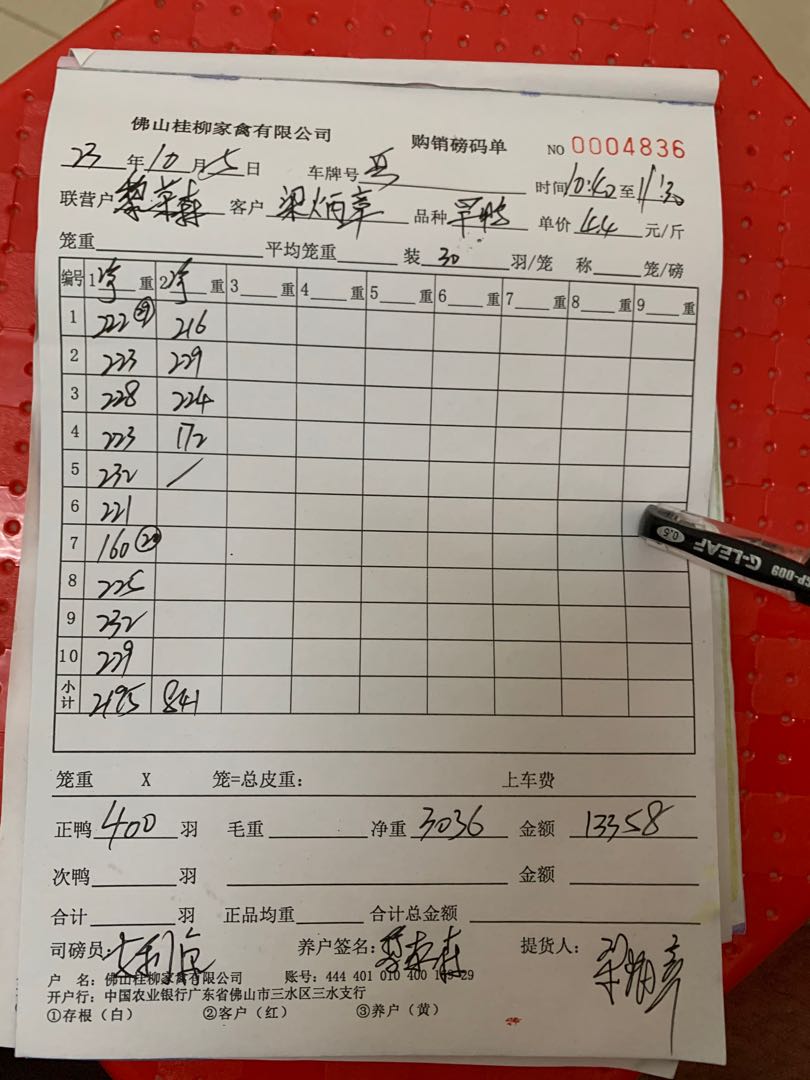 佛山桂柳家禽有限公司 购销磅码单 NO 0004836
23 年 10 月 5 日 车牌号 时间 10:40 至 11:30
联营户 黎荣森 客户 梁炳章 品种 单价 4.4 元/斤
笼重 平均笼重 装 30 羽/笼 称 笼/磅
编号 1 净 重 2 净 重 3 重 4 重 5 重 6 重 7 重 8 重 9 重
1 222 216
2 223 229
3 228 224
4 223 172
5 232 /
6 221
7 160
8 225
9 232
10 229
小计 2195 841
笼重 X 笼=总皮重: 上车费
正鸭 400 羽 毛重 净重 3036 金额 13358
次鸭 羽 金额
合计 羽 正品均重 合计总金额
司磅员: 养户签名: 黎荣森 提货人: 梁炳章
户 名: 佛山桂柳家禽有限公司 账号: 444 401 010 400 29
开户行: 中国农业银行广东省佛山市三水区三水支行
①存根（白） ②客户（红） ③养户（黄）
G-LEAF 0.5